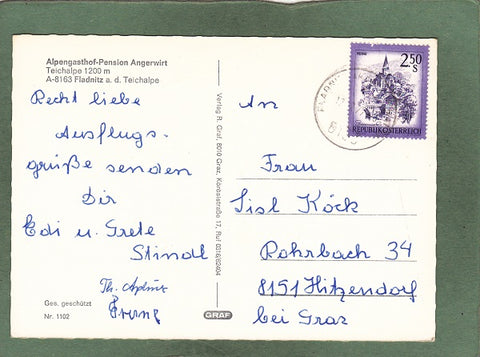 Alpengasthof-Pension Angerwirt
Teichalpe 1200 m
A-8163 Fladnitz a. d. Teichalpe
Recht liebe
Ausflugs-
grüße senden
Dir
Edi u. Grete
Stindl
Ges. geschützt
Nr. 1102
Verlag R. Graf, 8010 Graz,
GRAF
2.50
S
REPUBLIK ÖSTERREICH
An
Frau
Sisl Köck
Rohrbach 34
8151 Hitzendorf
bei Graz